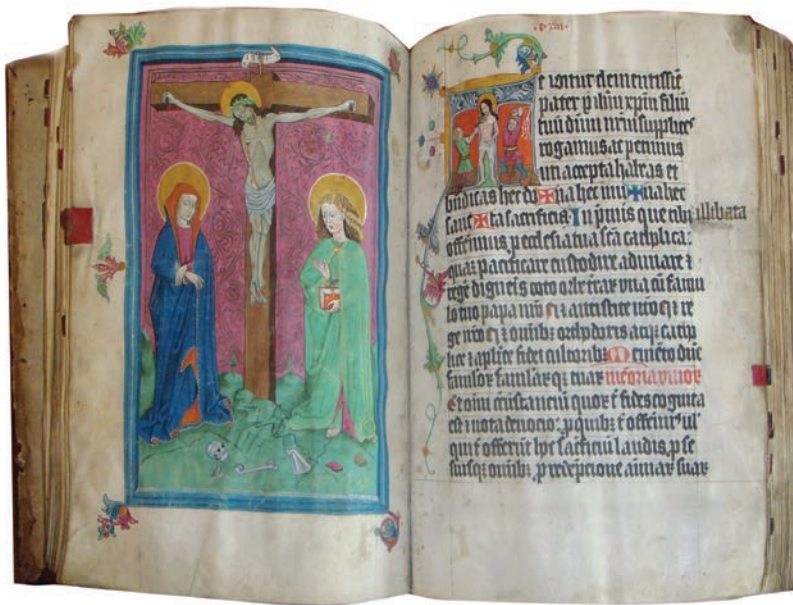 Te igitur clementissīe
pater p ihm xpm filiū
tuū dnm nrm supplices
rogamus ac petimus
uti accepta habeas et
bndicas hec do✠na hec mu✠nera hec
sanc✠ta sacrificia In pmis que tibi illibata
offerimus p ecclesia tua sca catholica
quā pacificare custodire adunare ⁊
regē digneris toto orbe terrar̄ vna cū famu
lo tuo papa nro N ⁊ antistite nro N ⁊ re
ge nro N ⁊ oībus orthodoxis atqꝫ catho
lice ⁊ aplice fidei cultoribꝫ Memēto dne
famulor famularqꝫ tuar memoria viuor
Et oīm circūstanciū quor t fides cognita
est ⁊ nota deuocio p quibꝫ t offerimꝰ ul
qui t offerūt hoc sacrificiū laudis p se
suisqꝫ oībus p redēpcione aīmar suar